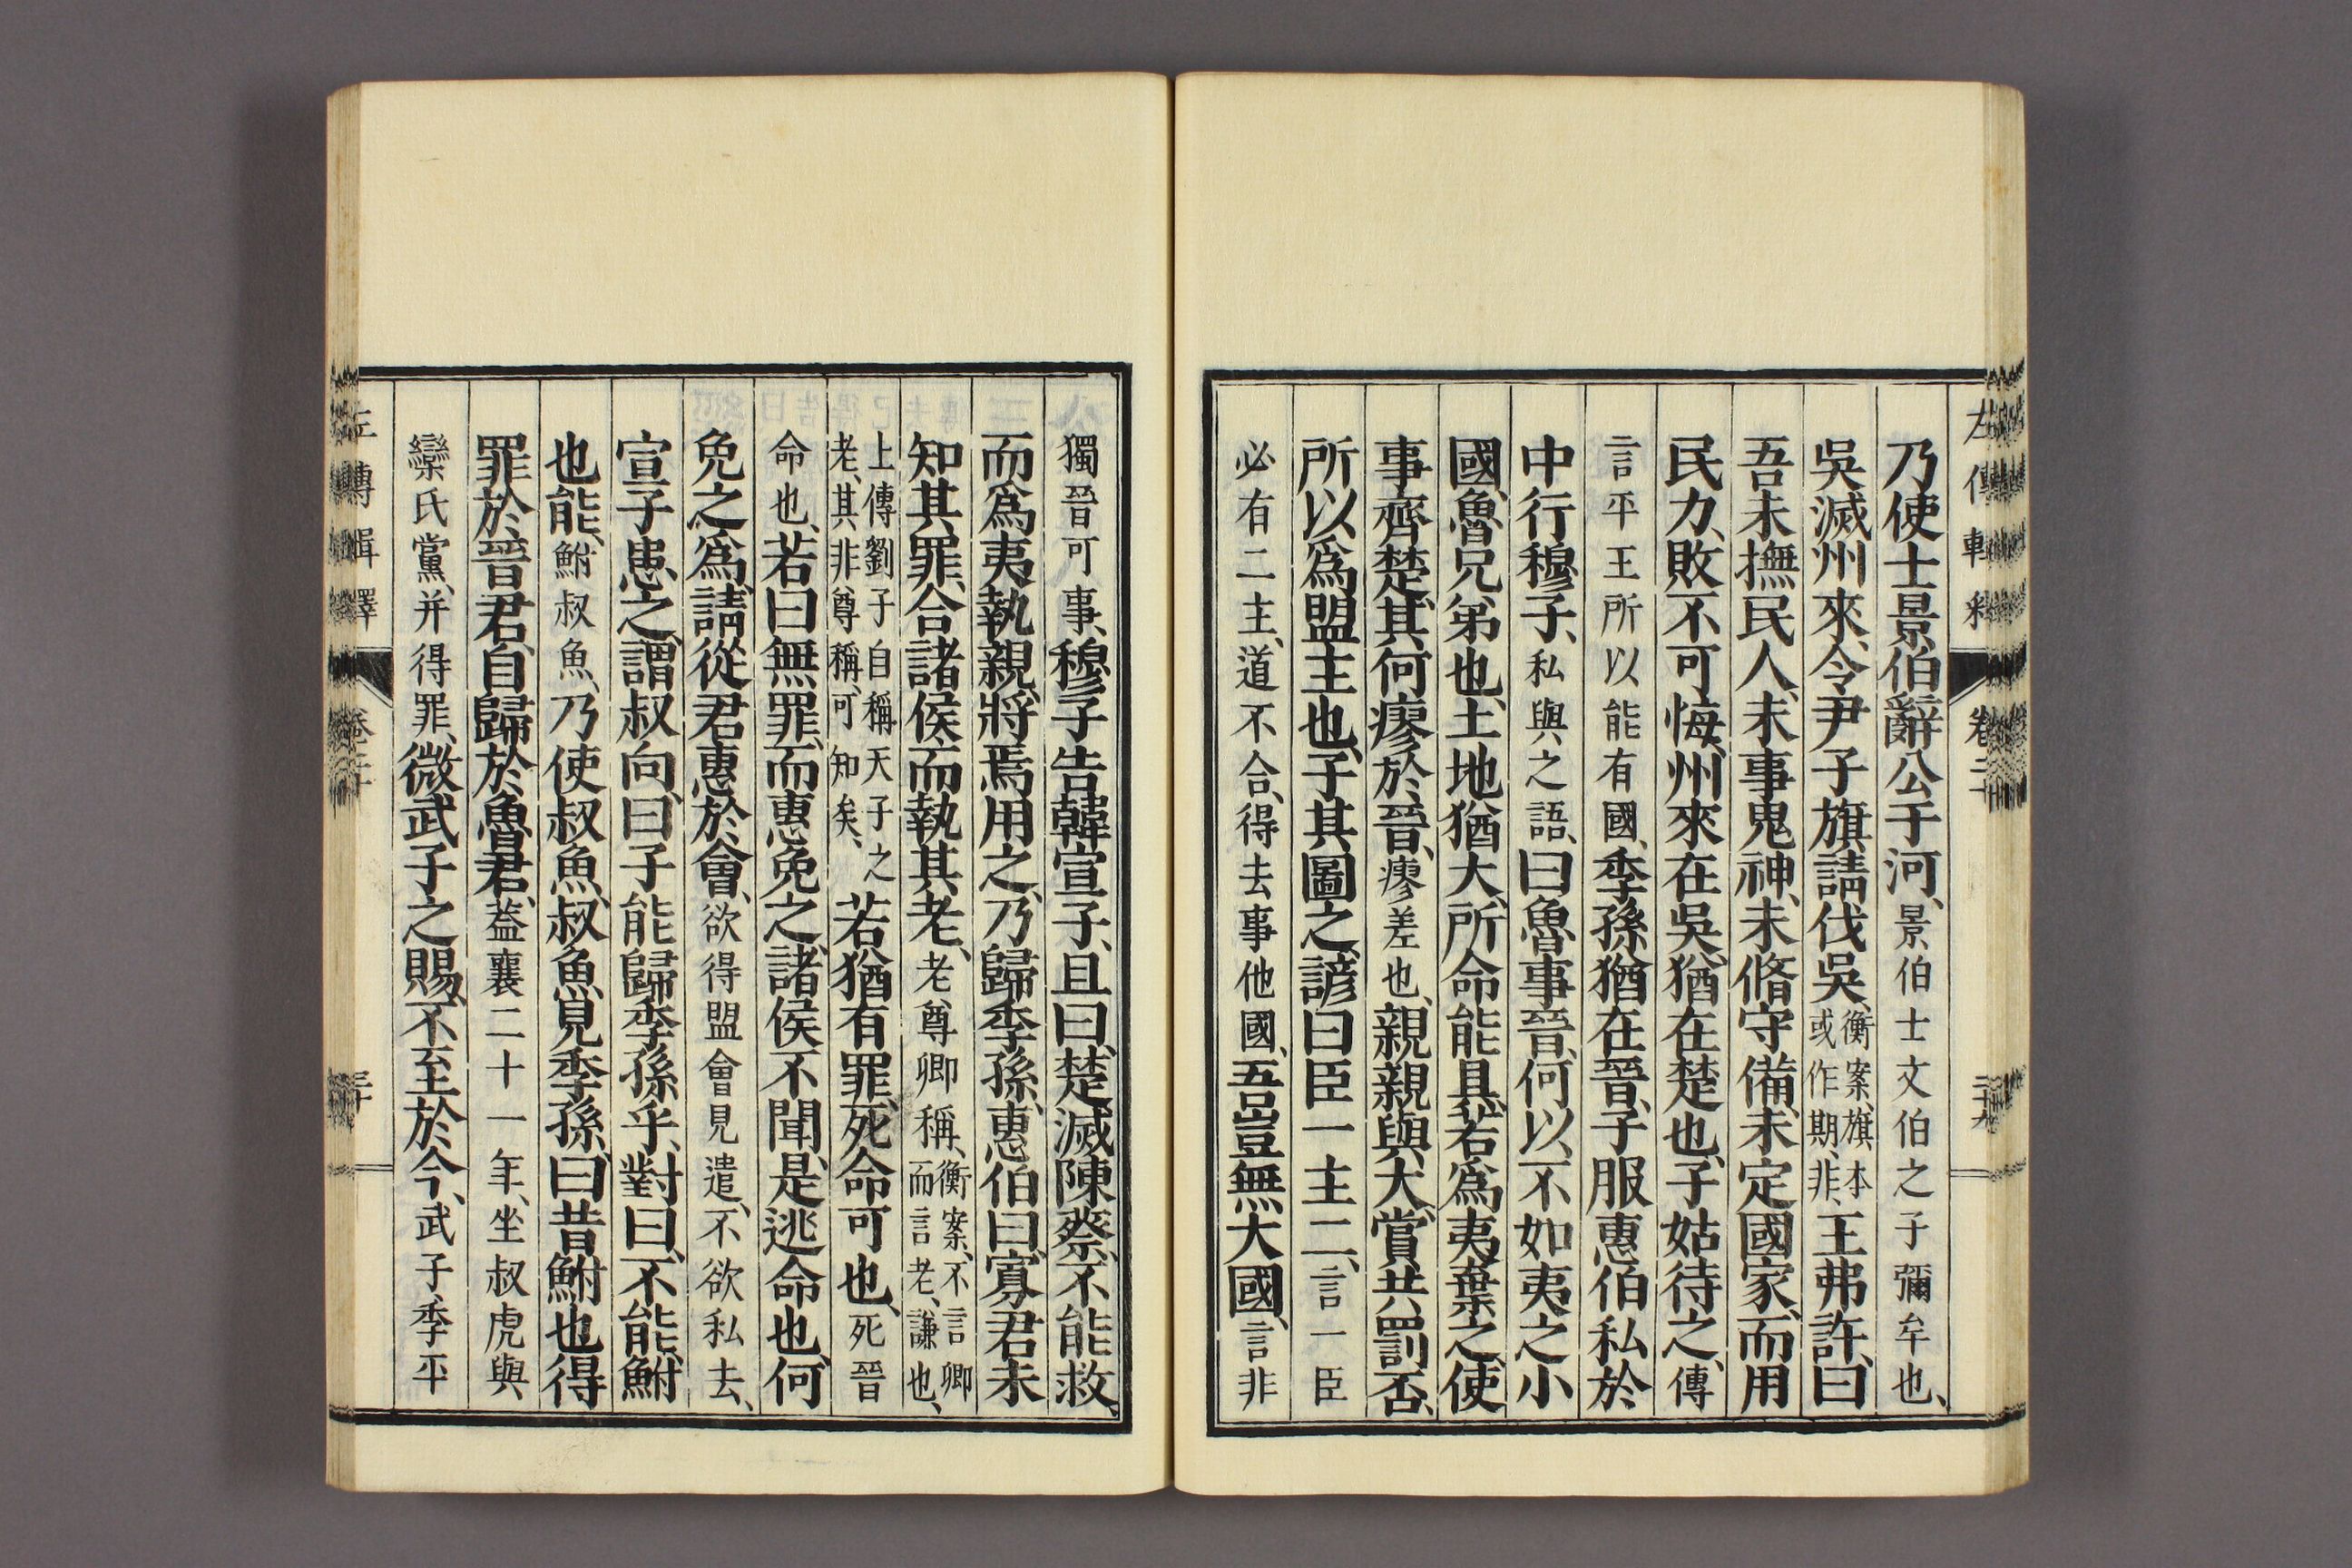 乃使士景伯辭公于河、景伯士文伯之子彌牟也、
吳滅州來、令尹子旗請伐吳、衡案、旗、本或作期、非、王弗許、曰
吾未撫民人、未事鬼神、未脩守備、未定國家、而用
民力、敗不可悔、州來在吳、猶在楚也、子姑待之、傳
言平王所以能有國、季孫猶在晉、子服惠伯私於
中行穆子、私與之語、曰魯事晉、何以不如夷之小
國、魯兄弟也、土地猶大、所命能具、若爲夷棄之、使
事齊楚、其何瘳於晉、瘳差也、親親與大、賞共罰否、
所以爲盟主也、子其圖之、諺曰臣一主二、言一臣
必有二主、道不合、得去事他國、吾豈無大國、言非
獨晉可事、穆子告韓宣子、且曰、楚滅陳蔡、不能救、
而爲夷執親、將焉用之、乃歸季孫、惠伯曰、寡君未
知其罪、合諸侯而執其老、老尊卿稱、衡案、不言卿而言老、謙也、
上傳劉子自稱天子之老、其非尊稱、可知矣、若猶有罪、死命可也、死晉
命也、若曰無罪、而惠免之、諸侯不聞、是逃命也、何
免之爲、請從君惠於會、欲得盟會見遣、不欲私去、
宣子患之、謂叔向、曰子能歸季孫乎、對曰、不能、鮒
也能、鮒叔魚、乃使叔魚、叔魚見季孫、曰昔鮒也得
罪於晉君、自歸於魯君、蓋襄二十一年、坐叔虎與
欒氏黨、并得罪、微武子之賜、不至於今、武子季平
左傳輯釋 卷二十 三十